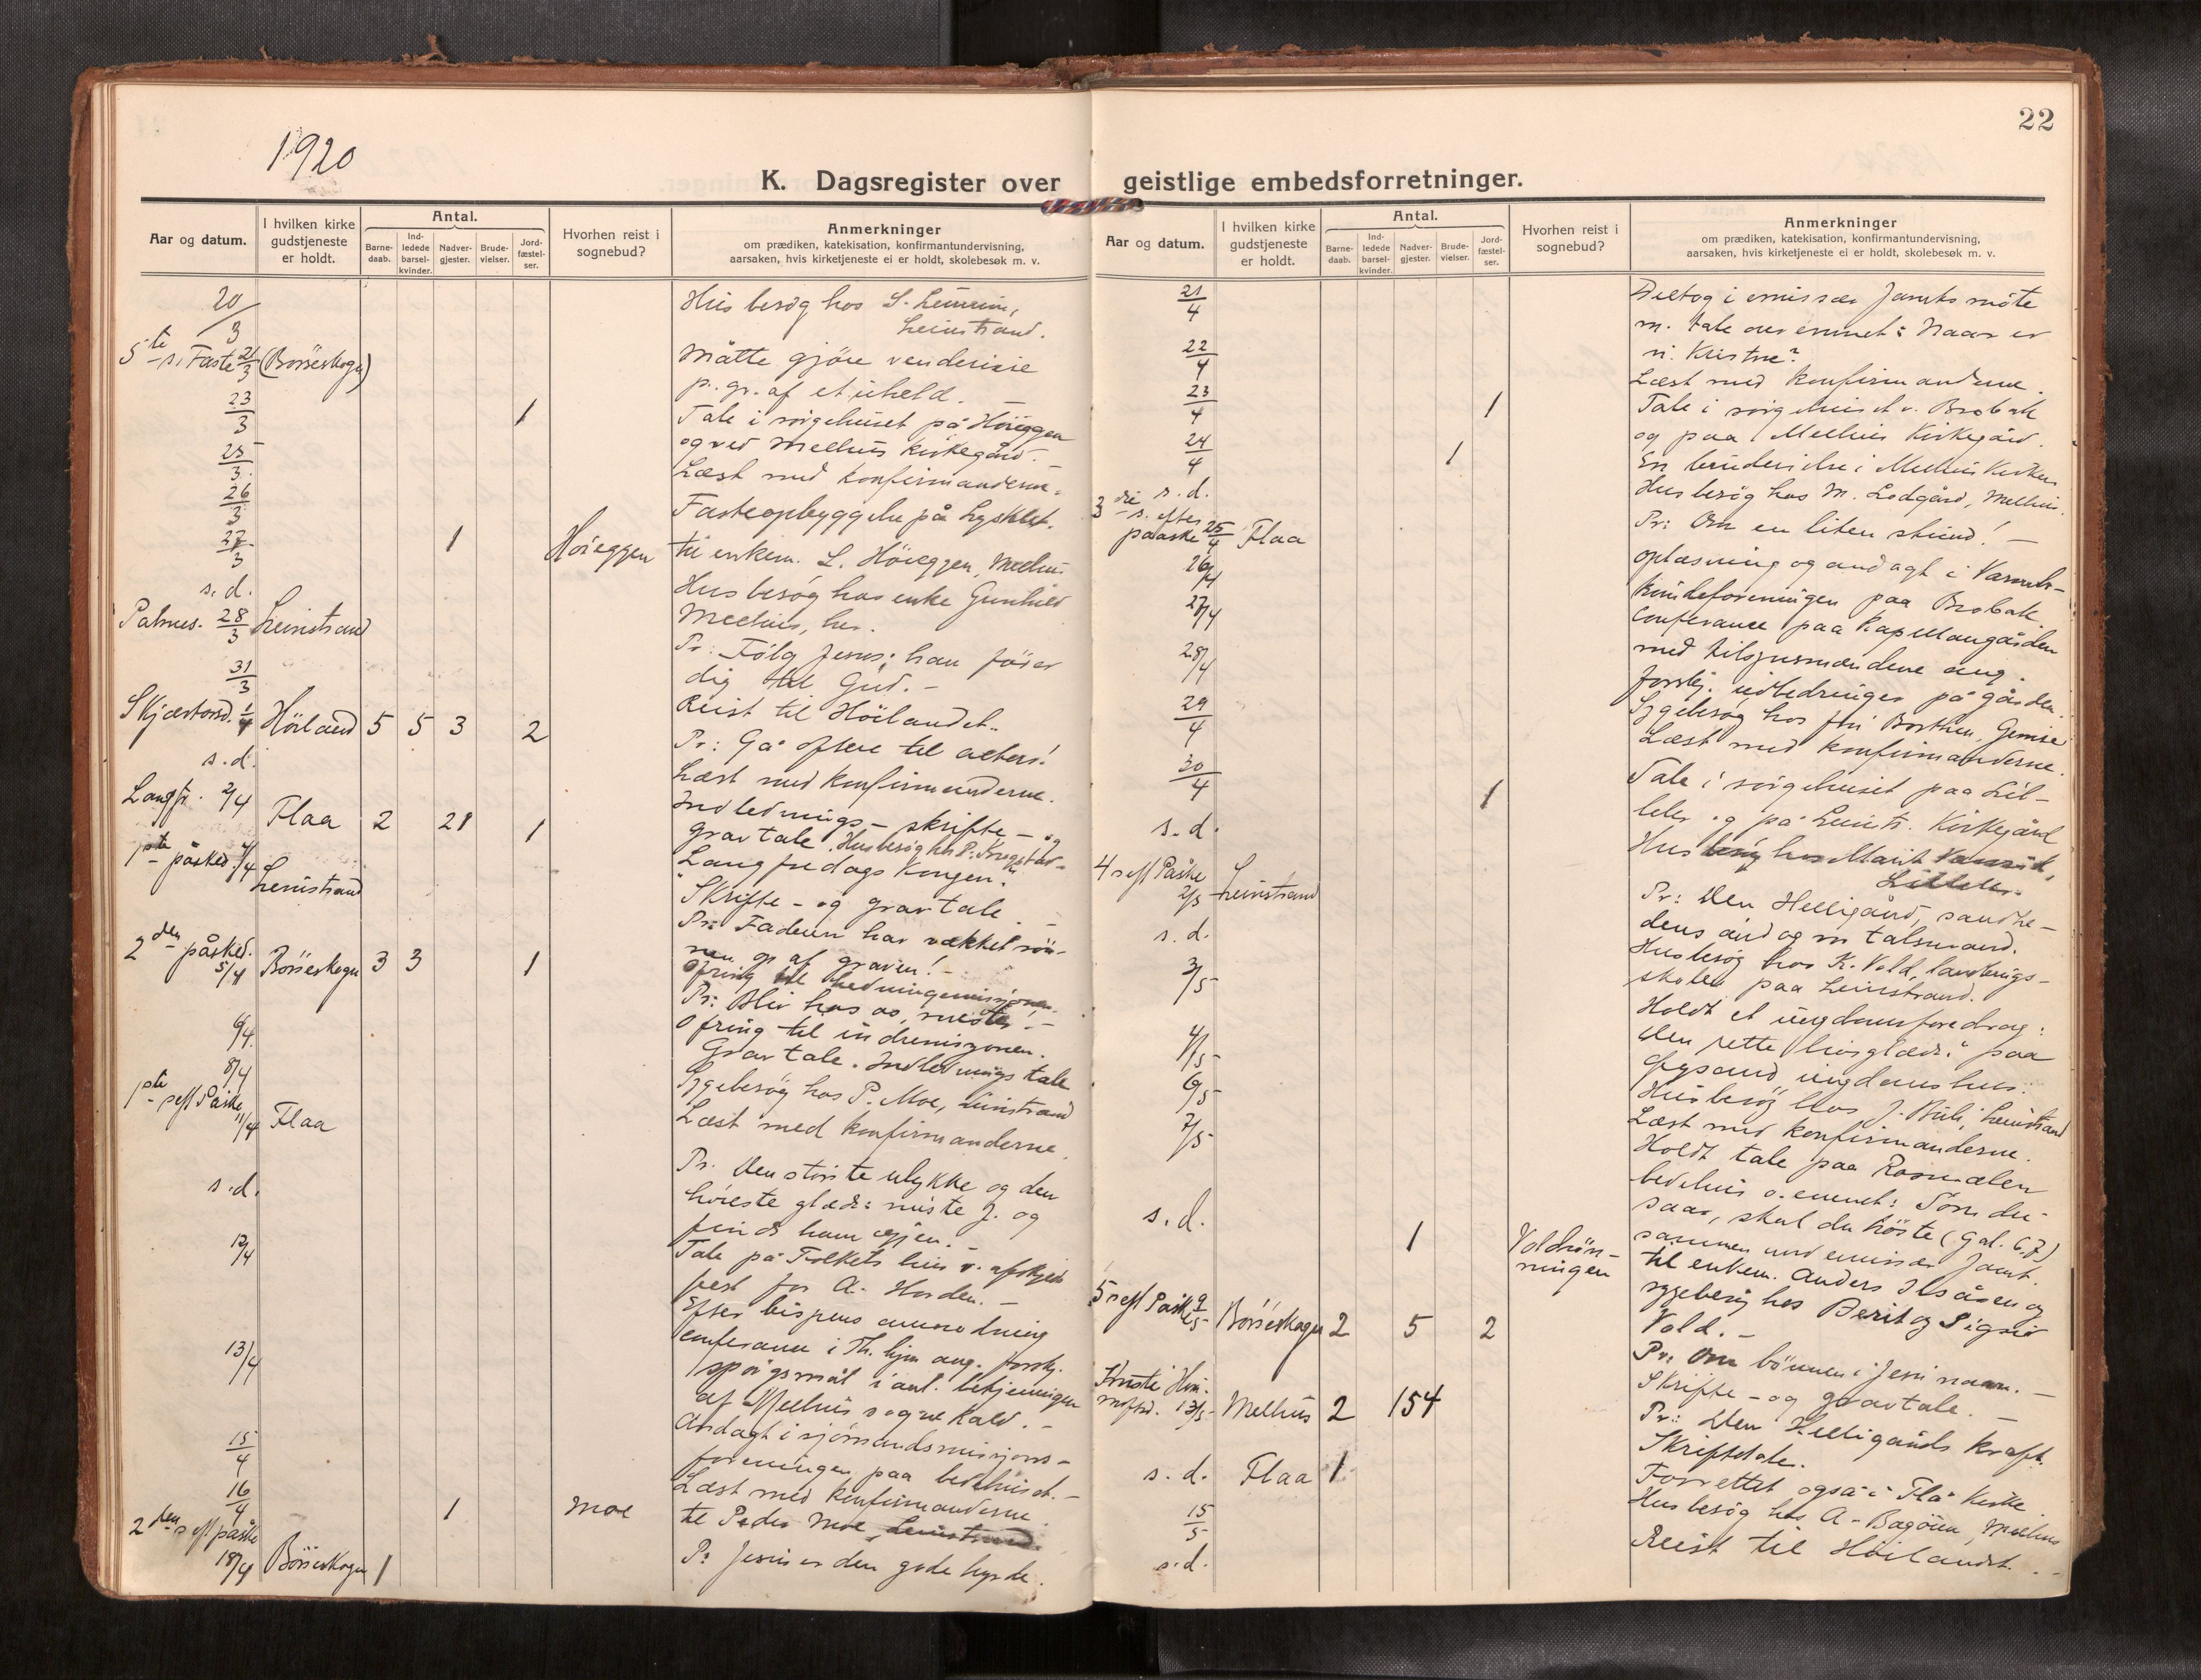 1920
K. Dagsregister over
Aar og datum.
I hvilken kirke gudstjeneste er holdt.
Antal.
Barne-daab.
Ind-ledede barsel-kvinder.
Nadver-gjester.
Brude-vielser.
Jord-fæstel-ser.
Hvorhen reist i sognebud?
Anmerkninger
om prædiken, katekisation, konfirmantundervisning,
aarsaken, hvis kirketjeneste ei er holdt, skolebesøk m. v.
20/3 Husbesøg hos S.
Leinstrand.
5te s. i Faste 21/3 (Börseskogn) Måtte gjöre vendereise
p. gr. af et uheld. —
23/3 1 Tale i sörgehuset på Höieggen
og ved Melhus kirkegård. —
25/3 Læst med konfirmanderne.
26/3 Fasteopbyggelse på Lysklet.
27/3 1 Höieggen til enkem. L. Höieggen, Melhus
s. d. Husbesøg hos enke Gunhild
Melhus, her.
Palmes. 28/3 Leinstrand Pr: Fölg Jesus; han förer
dig til Gud. —
31/3 Reist til Höilandet.
Skjærtorsd. 1/4 Höiland 5 5 3 2 Pr: Gå oftere til alters!
s. d. Læst med konfirmanderne.
Langfr. 2/4 Flaa 2 21 1 Indlednings- skrifte- og
gravtale. Husbesøg hos P.
Langfredags Kongen.
1ste påsked. 4/4 Leinstrand Skrifte- og gravtale. —
Pr: Faderen har vækket sön-
nen op af graven! —
Ofring til hedningemisjonen.
2den påsked. 5/4 Börseskogn 3 3 1 Pr: Bliv hos os, mester! —
Ofring til indremisjonen.
Gravtale. Indledningstale
6/4 Sygebesøg hos P. Moe, Leinstrand
8/4 Læst med konfirmanderne.
1ste s. eft Påske 11/4 Flaa Pr. Den störste ulykke og den
höieste glæde: miste J. og
finde ham igjen. —
s. d. Tale på Folkets hus v. afskjeds
fest for A. Horden. —
12/4 Efter bispens anmodning
conferanse i Th.hjm ang. forskj.
spörgsmål i anl. betjeningen
af Melhus sognekald. —
13/4 Andagt i sjömandsmisjons-
foreningen paa bedehuset. —
15/4 Læst med konfirmanderne.
16/4 1 Moe til Peder Moe, Leinstrand.
2den s. eft påske 18/4 Börseskogn 1 Pr Jesus er den gode hyrde.
22
geistlige embedsforretninger.
Aar og datum.
I hvilken kirke gudstjeneste er holdt.
Antal.
Barne-daab.
Ind-ledede barsel-kvinder.
Nadver-gjester.
Brude-vielser.
Jord-fæstel-ser.
Hvorhen reist i sognebud?
Anmerkninger
om prædiken, katekisation, konfirmantundervisning,
aarsaken, hvis kirketjeneste ei er holdt, skolebesøk m. v.
21/4 Deltog i emissær Jamts möte
m. tale over emnet: Naar er
vi Kristne?
22/4 Læst med konfirmanderne.
23/4 1 Tale i sörgehuset v. Brobak
og paa Melhus Kirkegård.
24/4 1 En brudevielse i Melhus Kirke
s. d. Husbesög hos M. Lodgård, Melhus.
3die s. efter paaske 25/4 Flaa Pr: Om en liten stund! —
26/4 oplæsning og andagt i
Kvindeforeningen paa Brobak
27/4 Conferanse paa Kapellangården
med tilsynsmændene ang.
forskj. udbedringer på gården.
28/4 Sygebesøg hos fru Borthen, Gimse
29/4 Læst med konfirmanderne.
30/4 1 Tale i sörgehuset paa Lil-
leler og på Leinstr. Kirkegård
s. d. Husbesög hos Marit
Lilleler.
4 s eft Påske 2/5 Leinstrand Pr: Den Helligånd, sandhe-
dens ånd og vor talsmand.
s. d. Husbesøg hos K. Vold, landbrugs-
skolen paa Leinstrand.
3/5 Holdt et ungdomsforedrag:
"Den rette livsglæde" paa
Öysand ungdomshus.
4/5 Husbesög hos J. , Leinstrand
6/5 Læst med konfirmanderne.
7/5 Holdt tale paa Rosmælen
bedehus o. emnet: Som du
saar, skal du höste (Gal. 6.7)
sammen med emissær Jamt.
s. d. 1 Voldrön-
ningen til enkem. Anders Ilsåsen og
sygebesøg hos Berit og Sigrid
Vold. —
5 s eft Påske 9/5 Börseskogn 2 5 2 Pr: Om bönnen i Jesu navn. —
Skrifte- og gravtale. —
Kristi Him-
melfsd. 13/5 Melhus 2 154 Pr: Den Helligånds kraft.
Skriftetale.
s. d. Flaa 1 Forrettet også i Flå kirke
15/5 Husbesøg hos A. Bagöien, Melhus
s. d. Reist til Höilandet. —